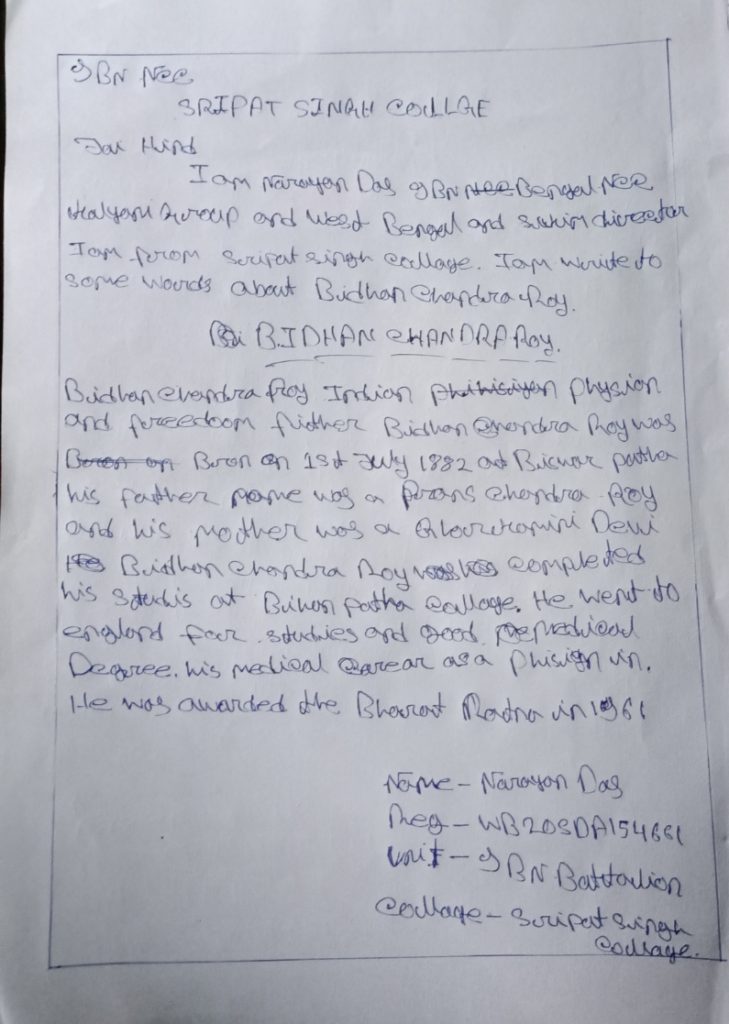 9BN NCC
SRIPAT SINGH COLLGE
Jai Hind
I am Narayan Das 9BN Bengal NCC
Kalyani Group and West Bengal and Sikim directer
I am from Sripat singh Collage. I am write to
some words about Bidhan Chandra Roy.
BIDHAN CHANDRA Roy.
Bidhan Chandra Roy Indian physion
and freedoom fidher Bidhan Chandra Roy was
Boron on 1st July 1882 at Bicnar patha
his father name was a Prans Chandra Roy
and his mother was a Devi
Bidhan Chandra Roy completed
his studis at Bihan patha Collage. He went to
england for studies and good Medical
Degree. his medical Carear as a Phisign in.
He was awarded the Bharat Ratna in 1961
Name - Narayan Das
Reg - WB20SDA154661
Unit - 9 BN Battalion
Collage - Sripat Singh
Collage.